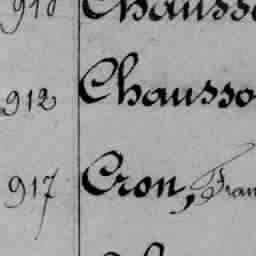 910 Chausso
912 Chausso
917 Cron, Fran